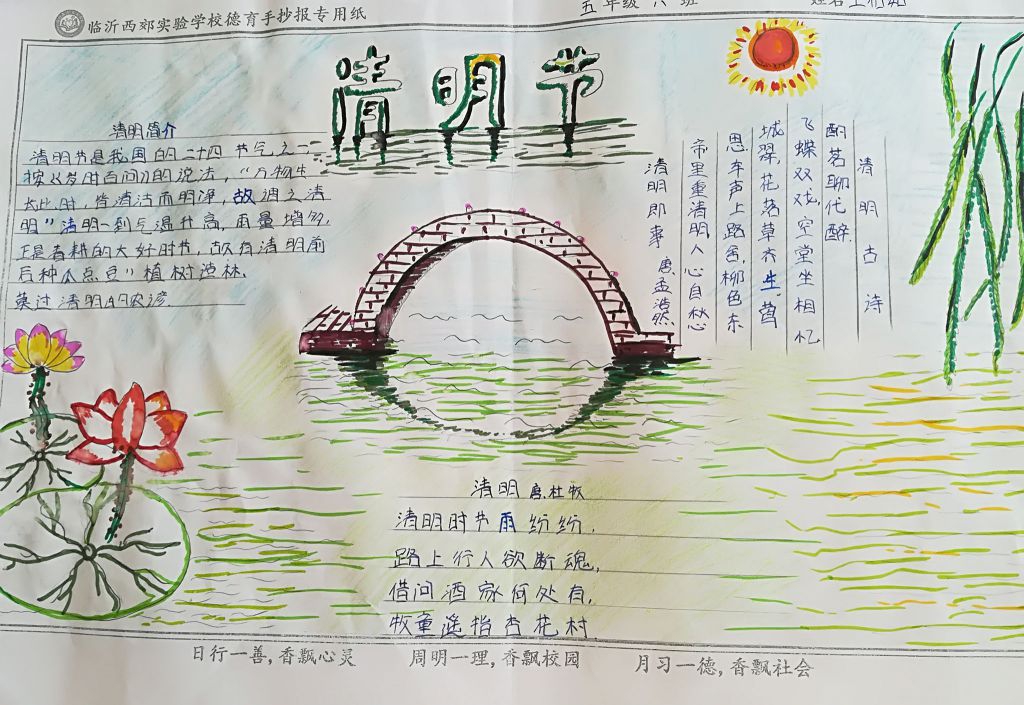 临沂西郊实验学校德育手抄报专用纸
五年级六班
姓名
清明节
清明简介
清明节是我国的二十四节气之一
按《岁时百问》的说法，“万物生
长此时，皆清洁而明净，故谓之清
明”清明一到气温升高，雨量增多
正是春耕的大好时节，故有清明前
后种瓜点豆”植树造林，
莫过清明的农谚.
清明古诗
酌茗聊代醉
飞蝶双戏空堂坐相忆
城翠，花落草木生.酋
思车声上路舍，柳色东
帝里重清明人心自愁
清明即事 唐孟浩然
清明 唐.杜牧
清明时节雨纷纷，
路上行人欲断魂，
借问酒家何处有，
牧童遥指杏花村.
日行一善，香飘心灵
周明一理，香飘校园
月习一德，香飘社会